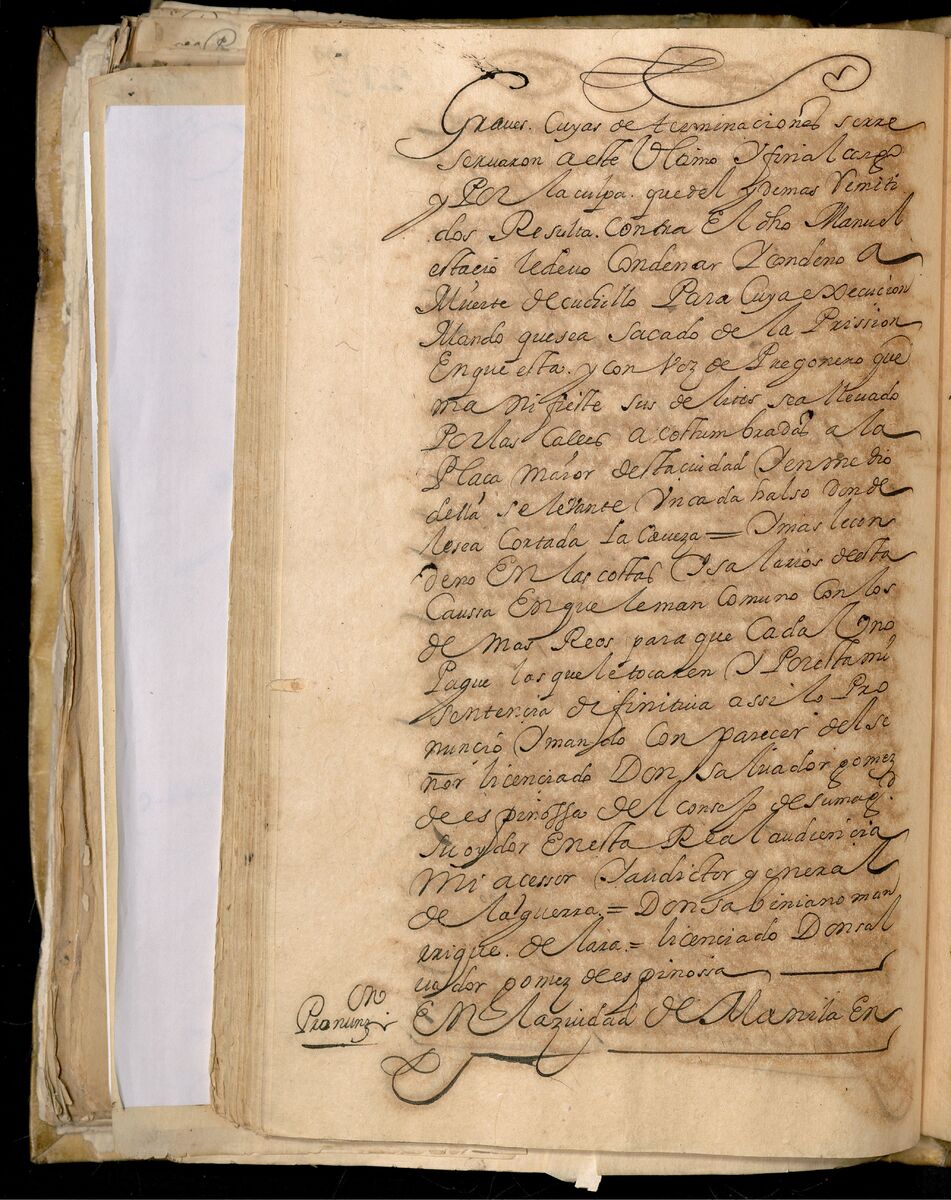 Graues. Cuyas determinaciones serre
seruaron a este Ultimo Y final cargo
y Por la culpa. que del y demas Remiti
dos Resulta. Contra El dho Manuel
estacio le deuo Condenar Y condeno a
Muerte de cuchillo Para Cuya execucion
Mando que sea sacado de la Prission
En que esta. y con Voz de Pregonero que
manifieste sus delitos sea lleuado
Por las Calles acostumbradas a la
Placa maior desta ciudad Y en medio
della se leuante Un cadahalso donde
le sea Cortada La Caueza = Y mas le con
deno En las costas Y salarios desta
Caussa En que le man comuno Con los
de mas Reos para que Cada Uno
Pague las que le tocaren Y Por esta mi
sentencia difinitiua assi lo Pro
nunció Y mando Con parecer del se
ñor licenciado Don saluador gomez
de espinossa del consejo de su magd.
su oydor En esta Real audiencia
Mi acessor Y audictor general
de la guerra. = Don sabiniano man
rrique. de lara. = licenciado Don sal
uador gomez de espinossa
Pronunzion
En la ziudad de Manila En